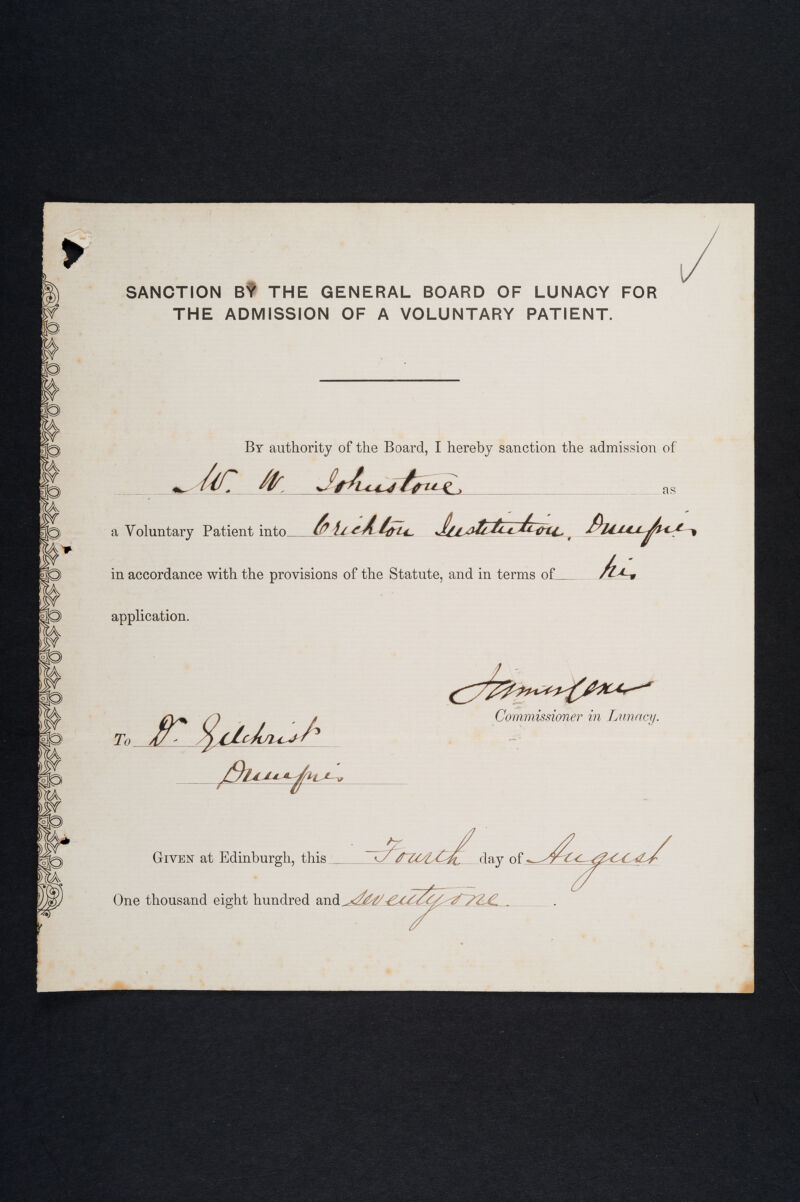 SANCTION BY THE GENERAL BOARD OF LUNACY FOR
THE ADMISSION OF A VOLUNTARY PATIENT.
By authority of the Board, I hereby sanction the admission of
W. Johnstone as
a Voluntary Patient into Crichton Institution, Dumfries
in accordance with the provisions of the Statute, and in terms of his
application.
James Coxe
Commissioner in Lunacy.
To Dr. Gilchrist
Dumfries
Given at Edinburgh, this Fourth day of August
One thousand eight hundred and seventy one.